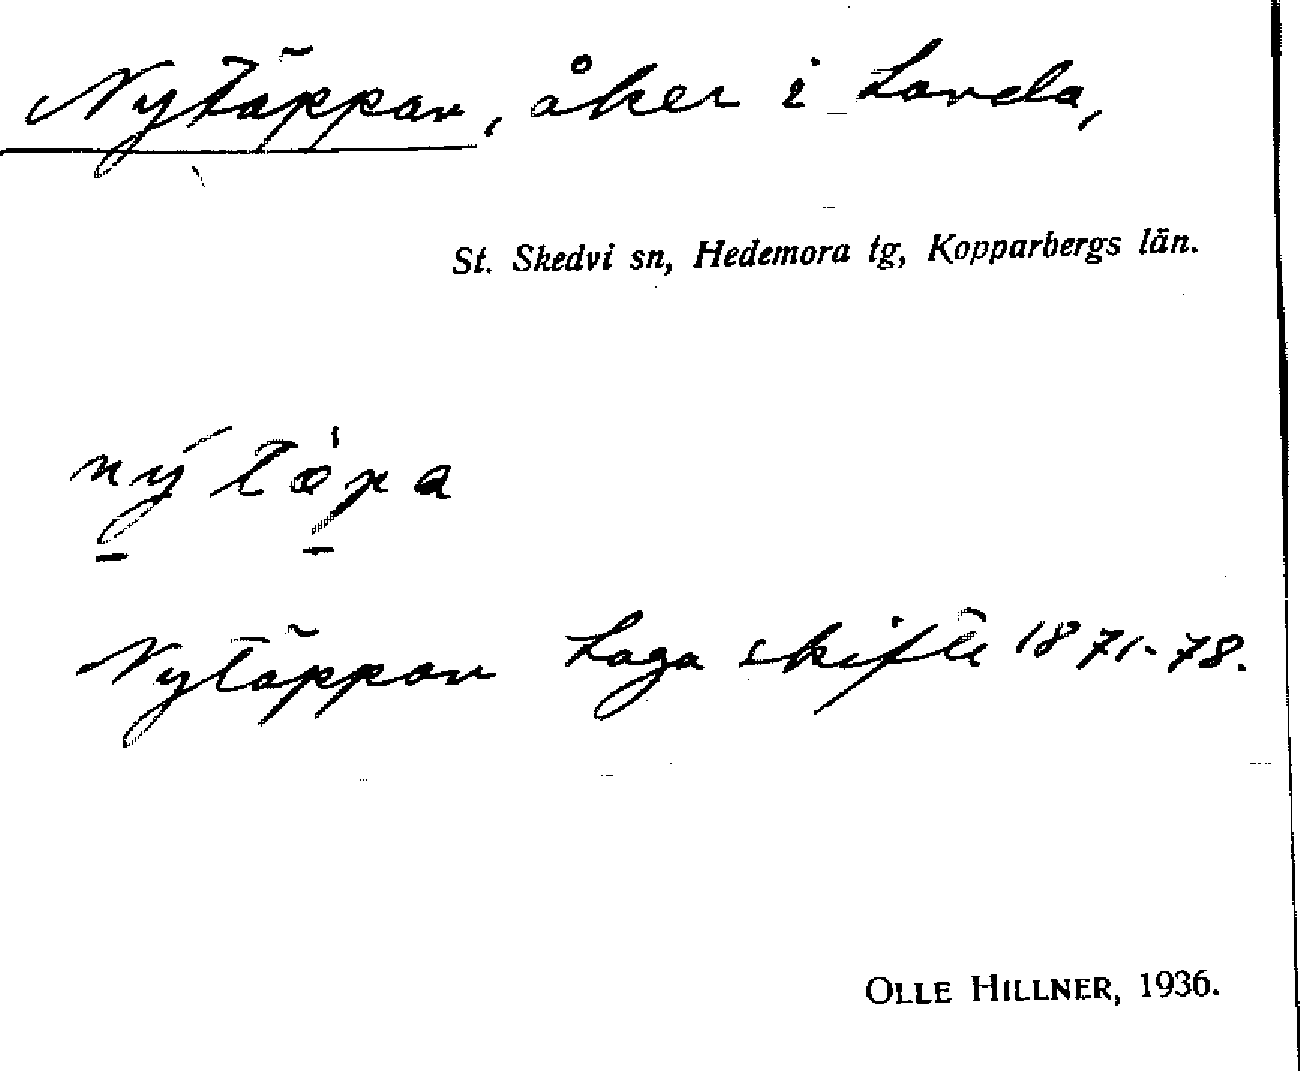 Nytäppan, åker i Landa,
St. Skedvi sn, Hedemora tg, Kopparbergs län.
ný tæ̀pa
Nytäppan Laga skifte 1871-78.
OLLE HILLNER, 1936.